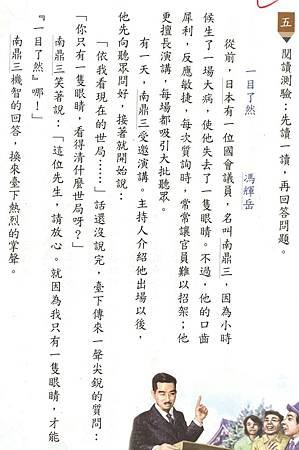 五 閱讀測驗：先讀一讀，再回答問題。
一目了然 馮輝岳
從前，日本有一位國會議員，名叫南鼎三，因為小時
候生了一場大病，使他失去了一隻眼睛。不過，他的口齒
犀利，反應敏捷，每次質詢時，常常讓官員難以招架；他
更擅長演講，每場都吸引大批聽眾。
有一天，南鼎三受邀演講。主持人介紹他出場以後，
他先向聽眾問好，接著就開始說：
「依我看現在的世局……」話還沒說完，臺下傳來一聲尖銳的質問：
「你只有一隻眼睛，看得清什麼世局呀？」
南鼎三笑著說：「這位先生，請放心。就因為我只有一隻眼睛，才能
『一目了然』哪！」
南鼎三機智的回答，換來臺下熱烈的掌聲。